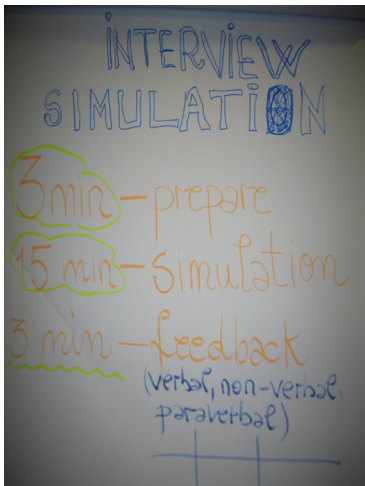 INTERVIEW
SIMULATION
3 min – prepare
15 min – simulation
3 min – feedback
(verbal, non-verbal,
paraverbal)